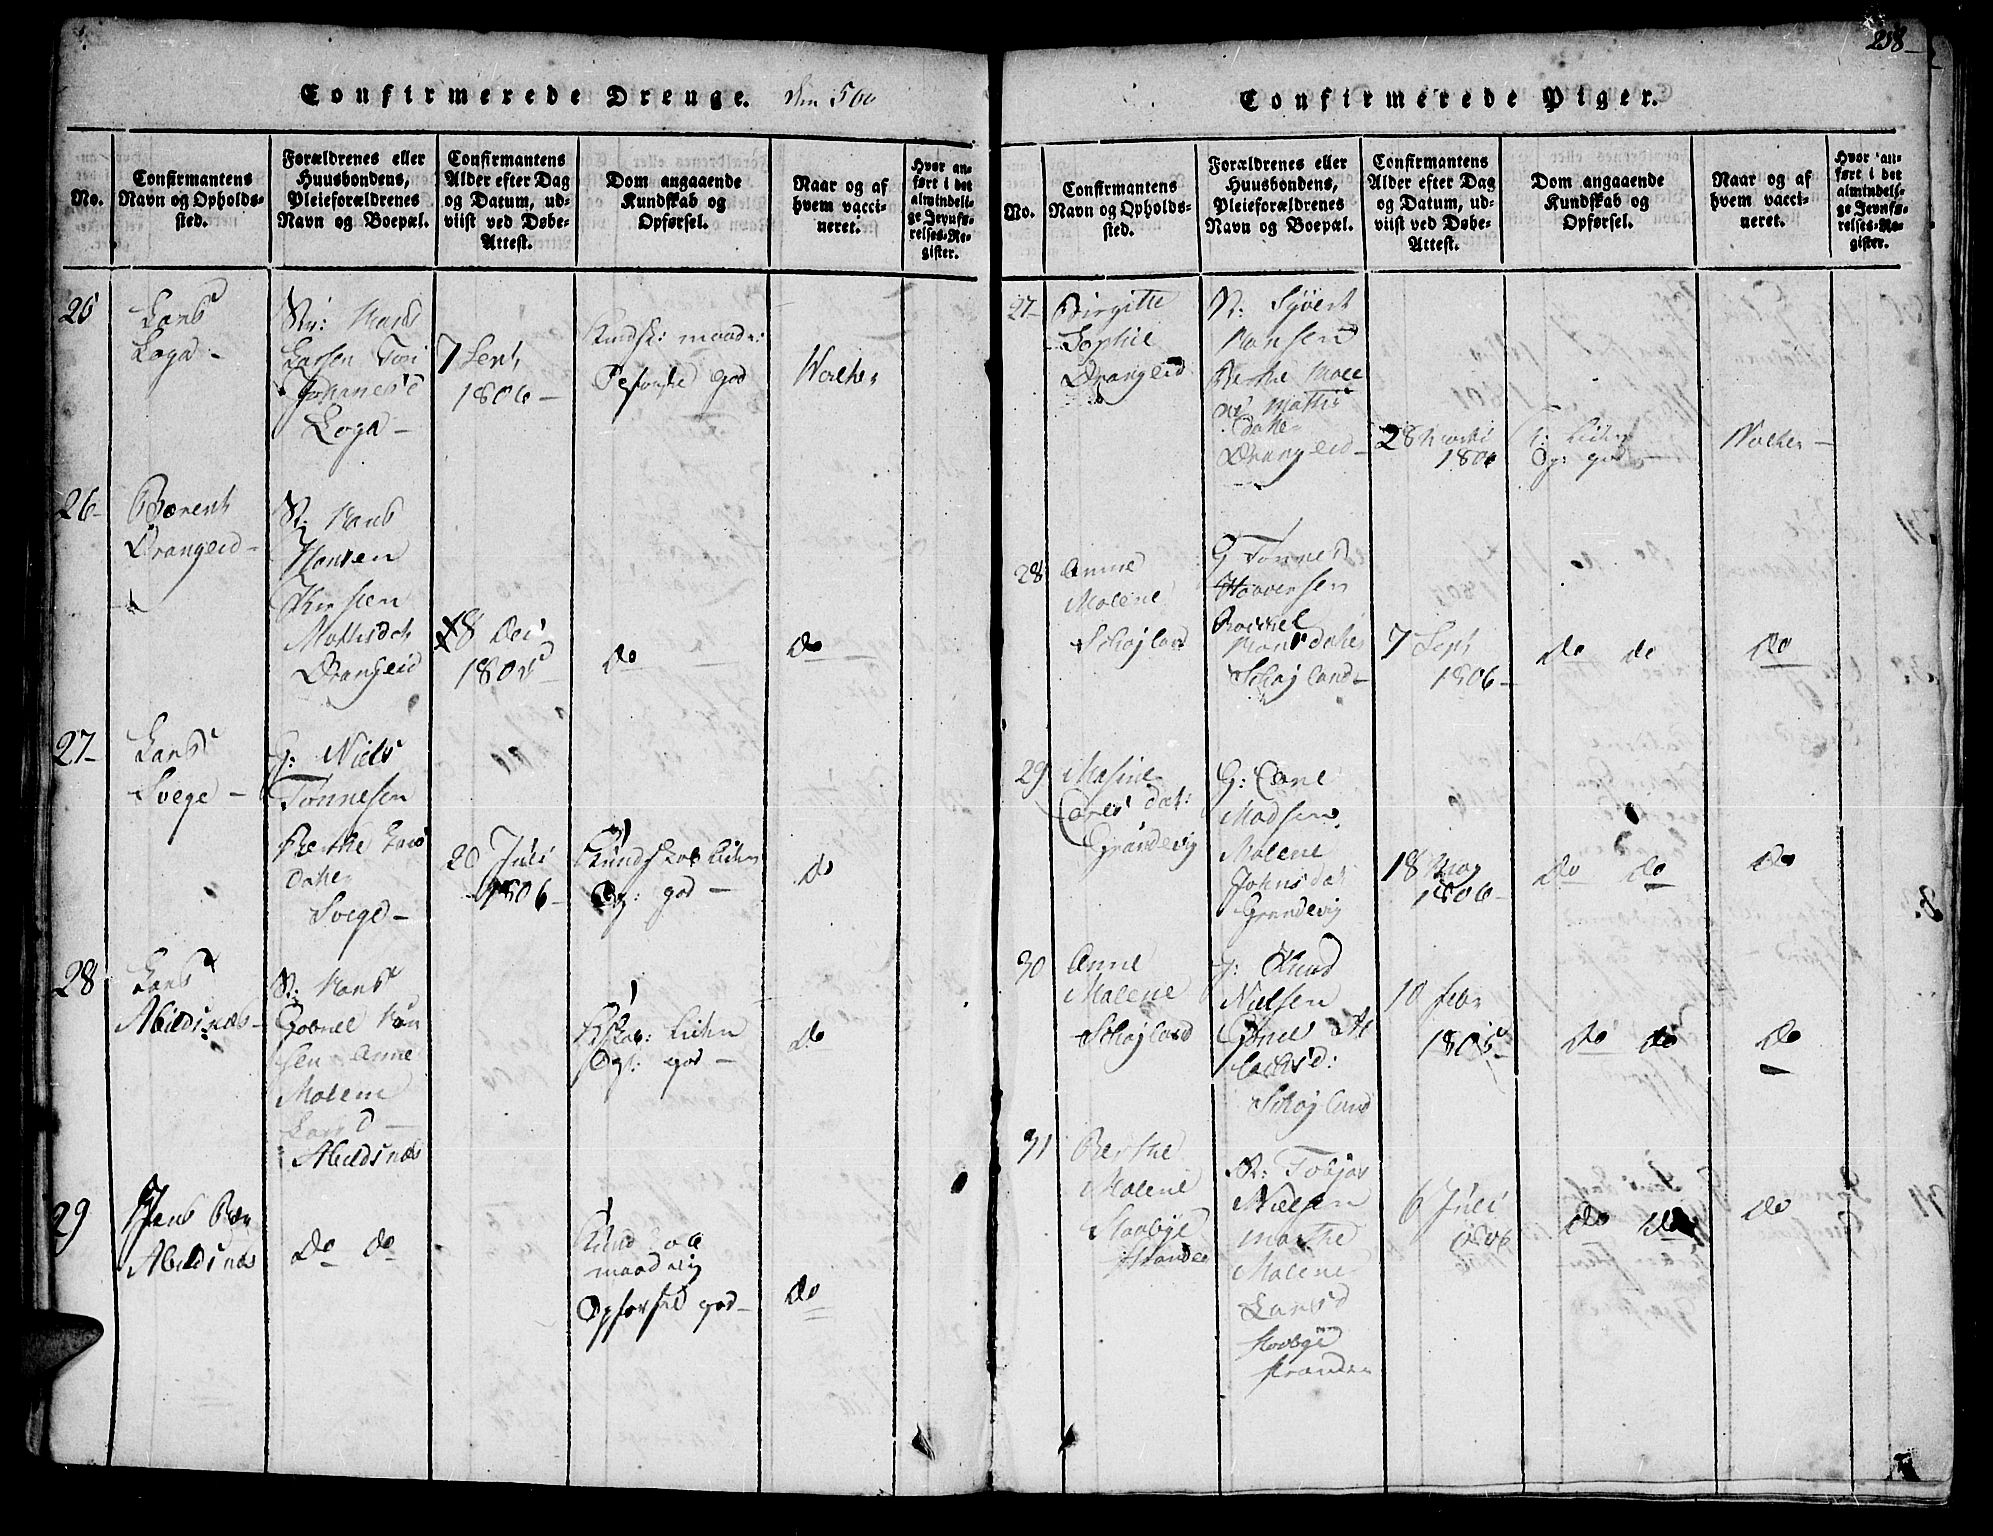 238
Confirmerede Drenge.
No.
Confirmantens
Navn og Opholds-
sted.
Forældrenes eller
Huusbondens,
Pleieforældrenes
Navn og Boepæl.
Confirmantens
Alder efter Dag
og Datum, ud-
viist ved Døbe-
Attest.
Dom angaaende
Kundskab og
Opførsel.
Naar og af
hvem vacci-
neret.
Hvor an-
ført i det
almindeli-
ge Jevnfø-
relses-Re-
gister.
25
Lars
Loga -
N: Hans
Larsen Tori
Johanesd
Loga -
7 Sept
1806 -
Kundsk: maade:
god
Walker
26 -
Berent
Drangeid -
N: Hans
Hansen
Kirsten
Mathisdat
Drangeid
18 Dec
1805
do
do
27 -
Lars
Svege -
G: Niels
Tønnesen
Berthe Lars
Datter
Svege -
20 Juli
1806 -
Kundskab Liden
Og: god -
do
28
Lars
Abildsnæs -
N: Hans
Gabriel Han
sen Anne
Malene
Larsd -
Abildsnæs
Kskab: Liden
Opf: god -
do
29
Jens
Abildsnæs
do do
Kundskab
maadelig
Opførsel god -
do
Confirmerede Piger.
No.
Confirmantens
Navn og Opholds-
sted.
Forældrenes eller
Huusbondens,
Pleieforældrenes
Navn og Boepæl.
Confirmantens
Alder efter Dag
og Datum, ud-
viist ved Døbe-
Attest.
Dom angaaende
Kundskab og
Opførsel.
Naar og af
hvem vacci-
neret.
Hvor an-
ført i det
almindeli-
ge Jevnfø-
relses-Re-
gister.
27 -
Birgitte
Sophie
Drangeid
N: Syvert
Hansen
Berthe Male
ne Mathis
Datter
Drangeid -
28 Marti
1806
K: Liden
Og: god
Walker -
28
Anne
Malene
Schøjland
G Tønnes
Haaversen
Rackel
Hansdatter
Schøjland -
7 Sept
1806 -
do do
do
29
Masine
Carls dat:
Grandevig
G: Carl
Madsen
Malene
Johnsdat
Grandevig
18 May
1806 -
do do
do
30
Anne
Malene
Schøjland
G: Knud
Nielsen
Schøjland
10 febr
1805 -
do do
do
31
Berthe
Malene
Stranden
N: Tobias
Nielsen
Marthe
Malene
Larsd
stranden
6 Juli
1806
do do
do